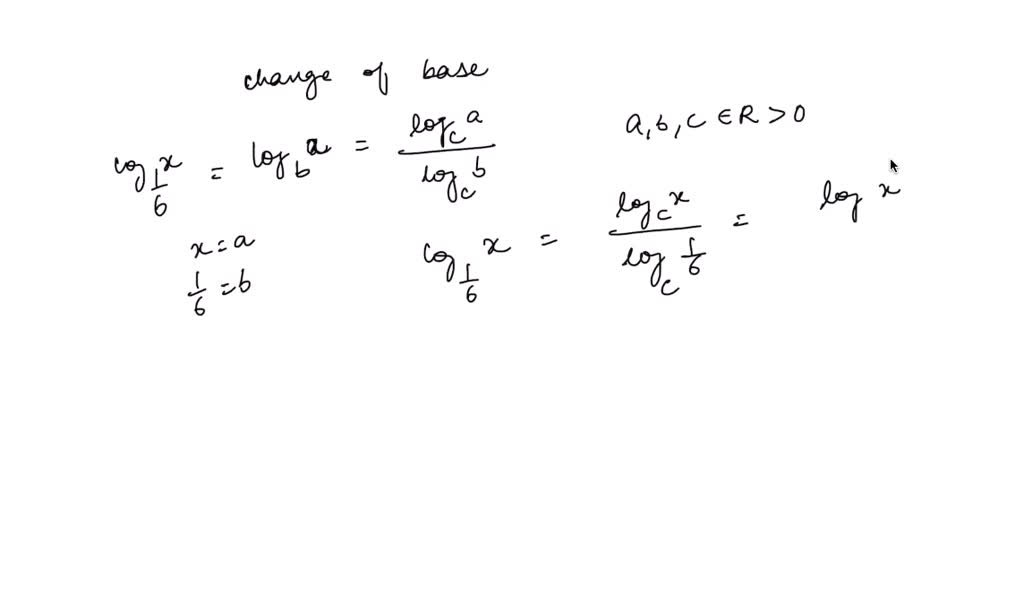 change of base
log_{1/6} x = log_b a = log_c a / log_c b
a, b, c ∈ R > 0
x = a
1/6 = b
log_{1/6} x = log_c x / log_c 1/6 = log x